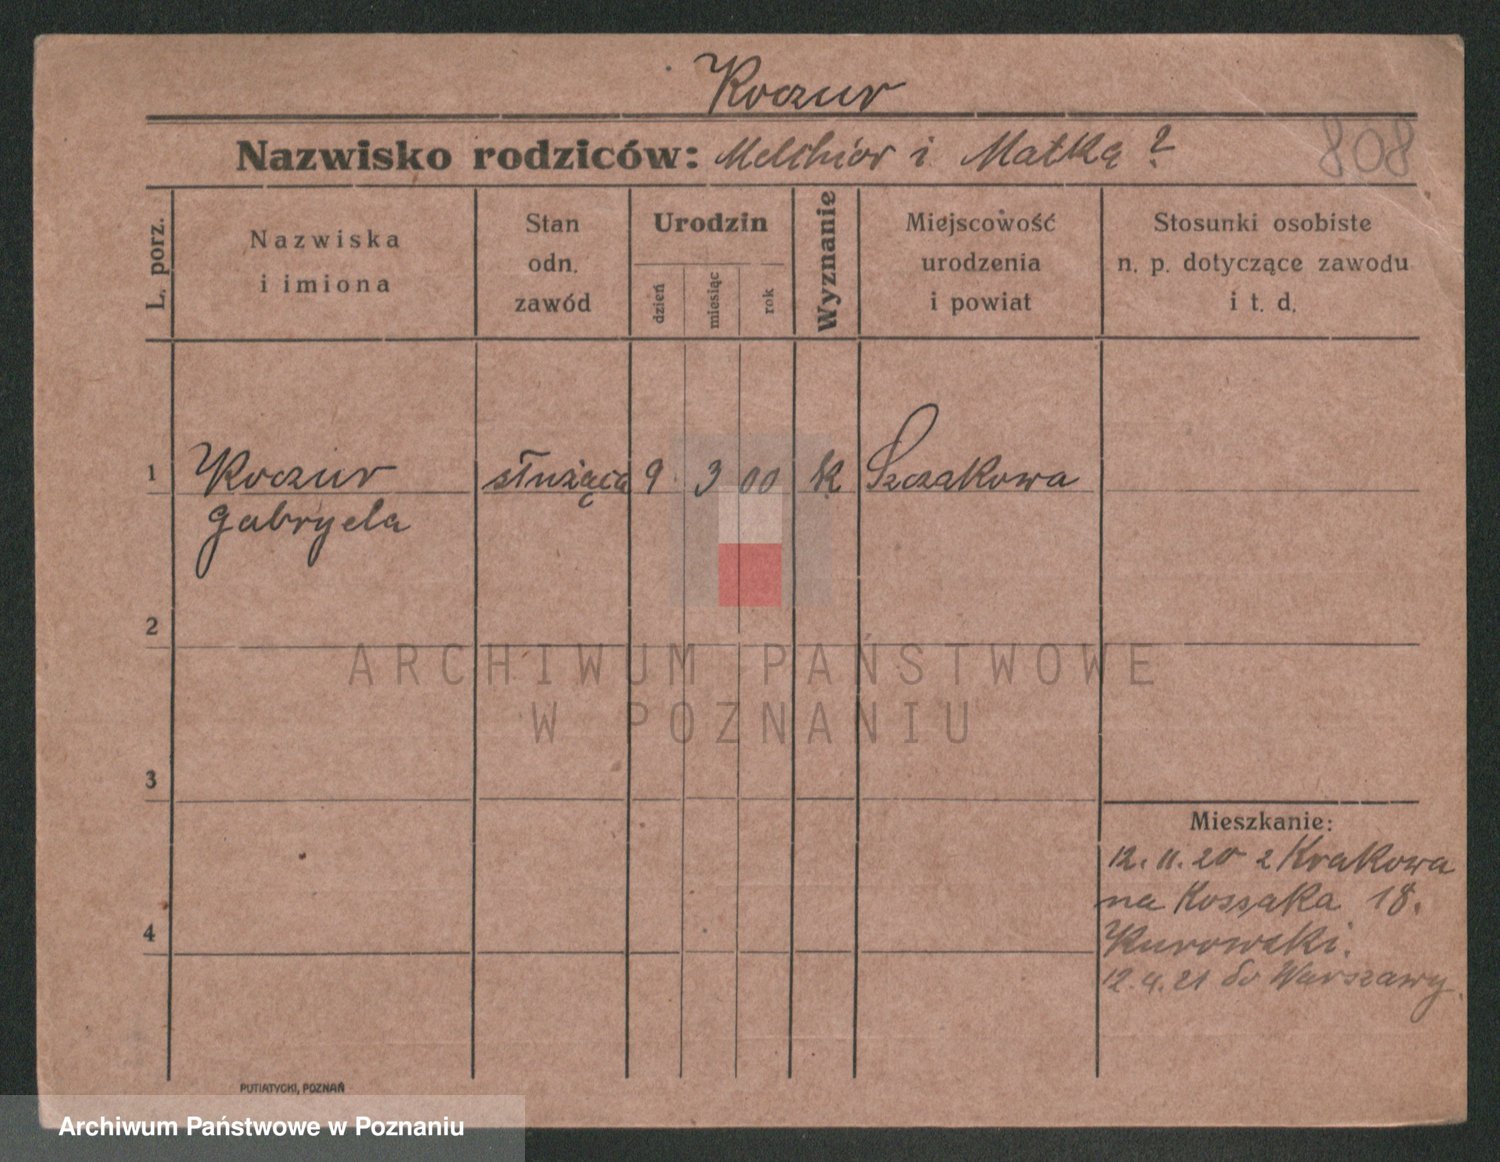 Koczur
Nazwisko rodziców: Melchior i Matka ?
808
L. porz.
Nazwiska
i imiona
Stan
odn.
zawód
Urodzin
dzień
miesiąc
rok
Wyznanie
Miejscowość
urodzenia
i powiat
Stosunki osobiste
n. p. dotyczące zawodu
i t. d.
1 Koczur służąca 9 3 00 k Szczakowa
Gabryela
2
ARCHIWUM PAŃSTWOWE
W POZNANIU
3
Mieszkanie:
12. 11. 20 z Krakowa
na Kossaka 18.
4
Kurowski.
12. 4. 21 do Warszawy.
PUTIATYCKI, POZNAŃ
Archiwum Państwowe w Poznaniu